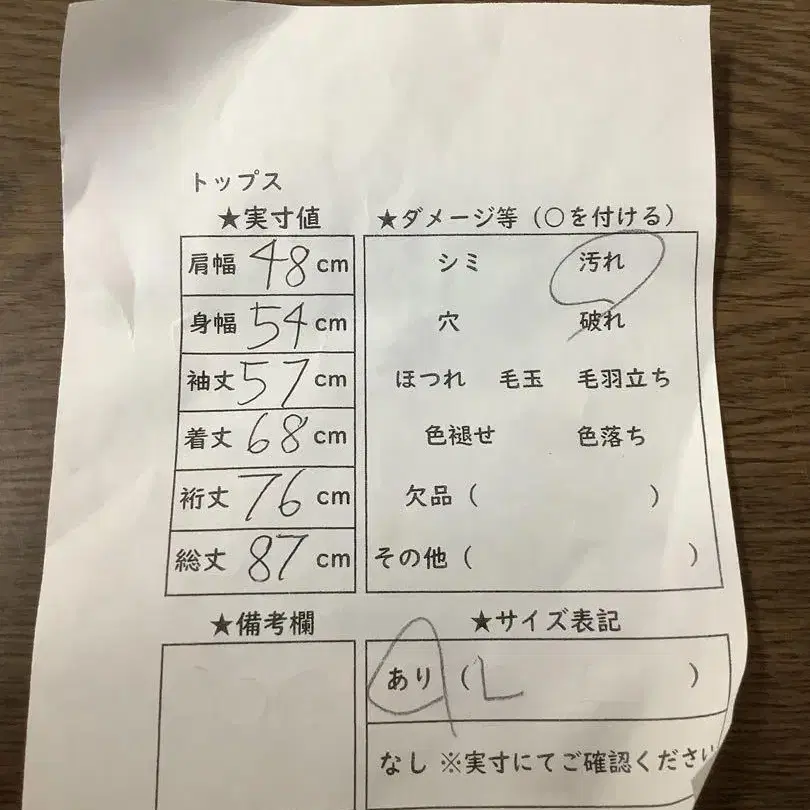 トップス
★実寸値
肩幅 48 cm
身幅 54 cm
袖丈 57 cm
着丈 68 cm
裄丈 76 cm
総丈 87 cm
★ダメージ等（○を付ける）
シミ 汚れ
穴 破れ
ほつれ 毛玉 毛羽立ち
色褪せ 色落ち
欠品（ ）
その他（ ）
★備考欄
★サイズ表記
あり（L ）
なし ※実寸にてご確認ください